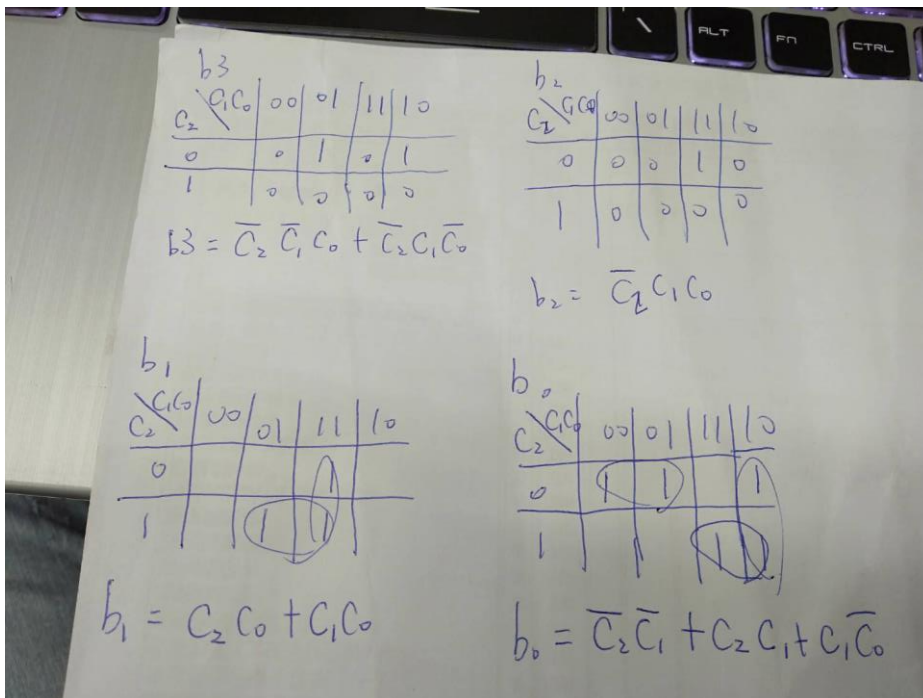 \ ALT FN CTRL
b3
C₂\C₁C₀ 00 01 11 10
0 0 1 0 1
1 0 0 0 0
b3 = C̅₂ C̅₁ C₀ + C̅₂ C₁ C̅₀
b₂
C₂\C₁C₀ 00 01 11 10
0 0 0 1 0
1 0 0 0 0
b₂ = C̅₂ C₁ C₀
b₁
C₂\C₁C₀ 00 01 11 10
0 1
1 1 1
b₁ = C₂ C₀ + C₁ C₀
b₀
C₂\C₁C₀ 00 01 11 10
0 1 1 1
1 1 1
b₀ = C̅₂ C̅₁ + C₂ C₁ + C₁ C̅₀